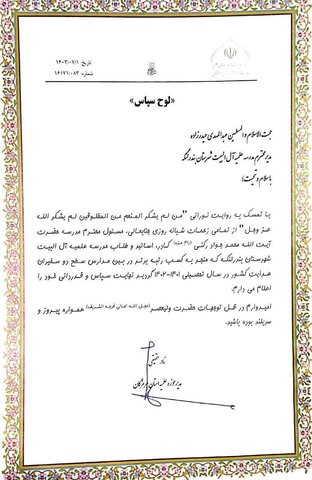 تاریخ: ۱۴۰۳/۰۷/۱
شماره: ۱۶۱۷۱/۰۸۳
«لوح سپاس»
حجت الاسلام و المسلمین عبدالمهدی حیدرزاده
مدیر محترم مدرسه علمیه آل البیت شهرستان بندر لنگه
با سلام و تحیت؛
با تمسک به روایت نورانی "من لم یشکر المنعم من المخلوقین لم یشکر الله
عز وجل" از تمامی زحمات شبانه روزی جنابعالی، مسئول محترم مدرسه حضرت
آیت الله محمد جواد رکنی کادر، اساتید و طلاب مدرسه علمیه آل البیت
شهرستان بندرلنگه که منجر به کسب رتبه برتر در بین مدارس سطح دو سفیران
هدایت کشور در سال تحصیلی ۱۴۰۱-۱۴۰۲ گردید نهایت سپاس و قدردانی خود را
اعلام می دارم.
امیدوارم در ظل توجهات حضرت ولیعصر (عجل الله تعالی فرجه الشریف) همواره پیروز و
سربلند بوده باشید.
مدیر حوزه علمیه استان هرمزگان